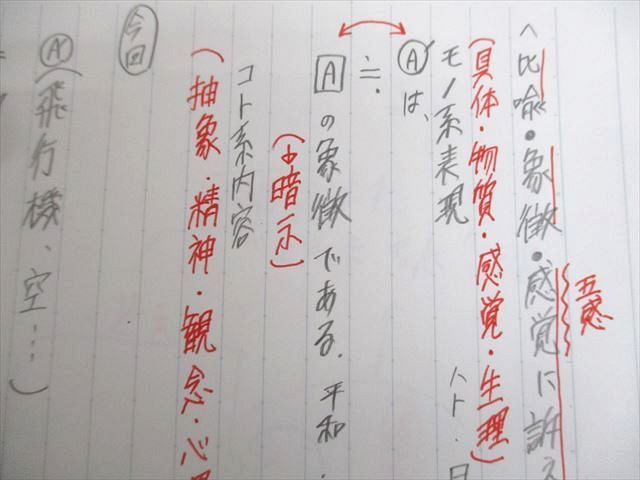 五感
〈比喩・象徴・感覚に訴え
(具体・物質・感覚・生理)
モノ系表現 ハト・日
Ⓐは、
≒
Aの象徴である。平和・
(→暗示)
コト系内容
(抽象・精神・観念・心理
今回
Ⓐ(飛行機、空…)